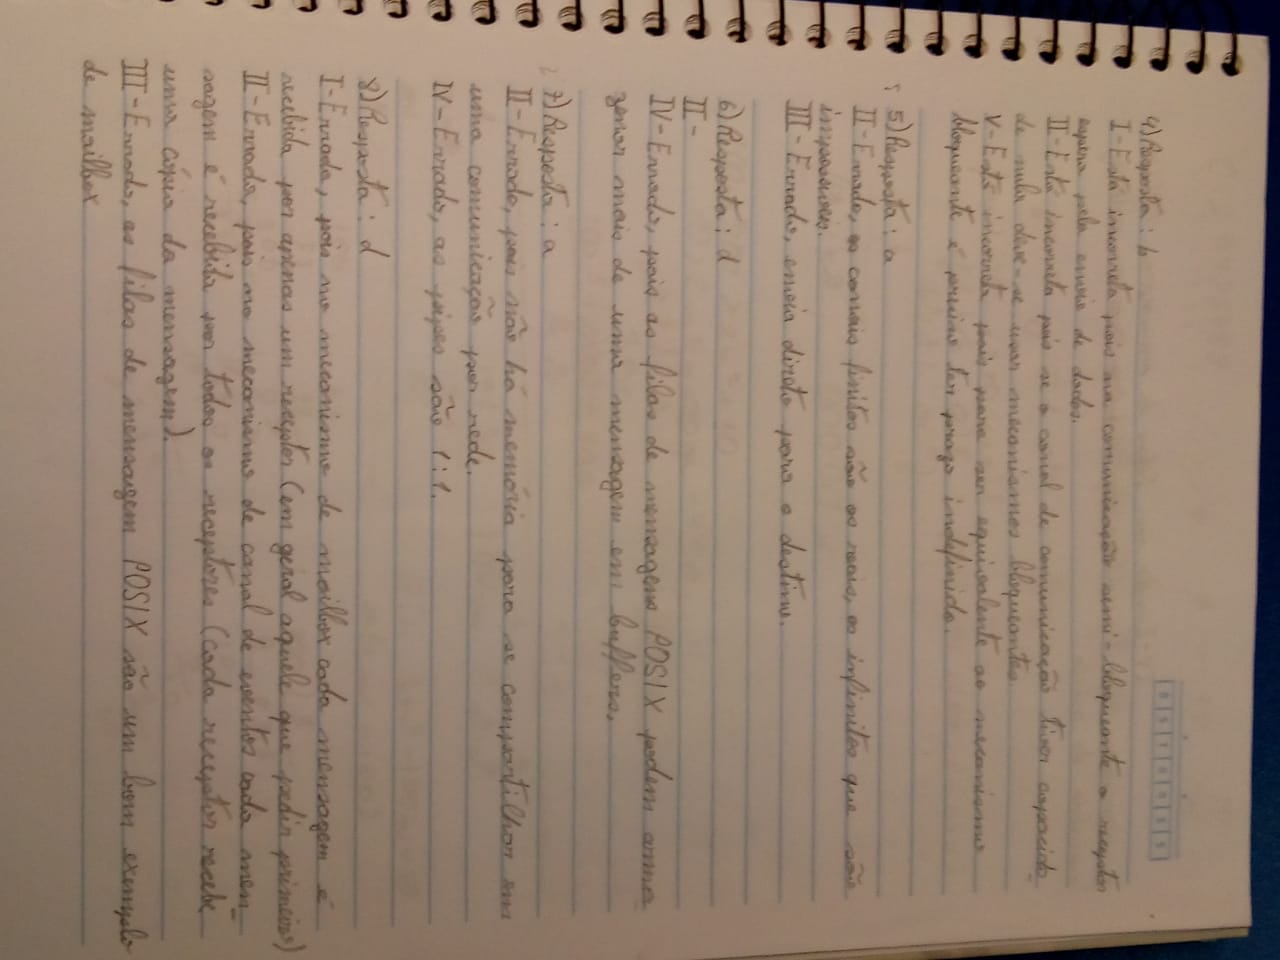 4) Resposta: b
I-Está incorreta pois na comunicação semi-bloqueante o receptor
espera pelo envio de dados.
II-Está incorreta pois se o canal de comunicação tiver capacida_
de nula deve-se usar mecanismos bloqueantes.
V-Está incorreta pois para ser equivalente ao mecanismo
bloqueante é preciso ter prazo indefinido.
5) Resposta: a
II-Errado, os canais finitos são os reais, os infinitos que são
impossíveis.
III-Errado, envia direto para o destino.
6) Resposta: d
II-
IV-Errado, pois as filas de mensagens POSIX podem arma
zenar mais de uma mensagem em buffers.
7) Resposta: a
II-Errado, pois não há memória para se compartilhar em
uma comunicação por rede.
IV-Errado, as pipes são 1:1.
8) Resposta: d
I-Errada, pois no mecanismo de mailbox cada mensagem é
recebida por apenas um receptor (em geral aquele que pedir primeiro)
II-Errada, pois no mecanismo de canal de eventos cada men_
sagem é recebida por todos os receptores (cada receptor recebe
uma cópia da mensagem).
III-Errado, as filas de mensagem POSIX são um bom exemplo
de mailbox